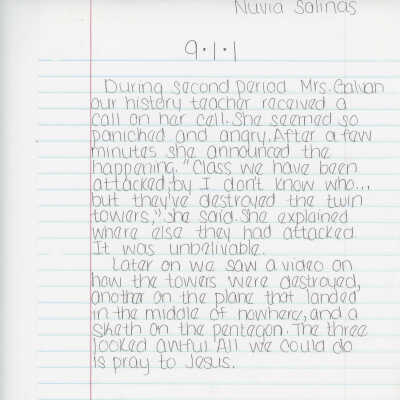 Nuvia Salinas
9.1.1
During second period Mrs. Galvan
our history teacher received a
call on her cell. She seemed so
paniched and angry. After a few
minutes she announced the
happening. "Class we have been
attacked, by I don't know who...
but they've destroyed the twin
towers," she said. She explained
where else they had attacked.
It was unbelivable.
Later on we saw a video on
how the towers were destroyed,
another on the plane that landed
in the middle of nowhere, and a
sketh on the pentagon. The three
looked awful. All we could do
is pray to Jesus.